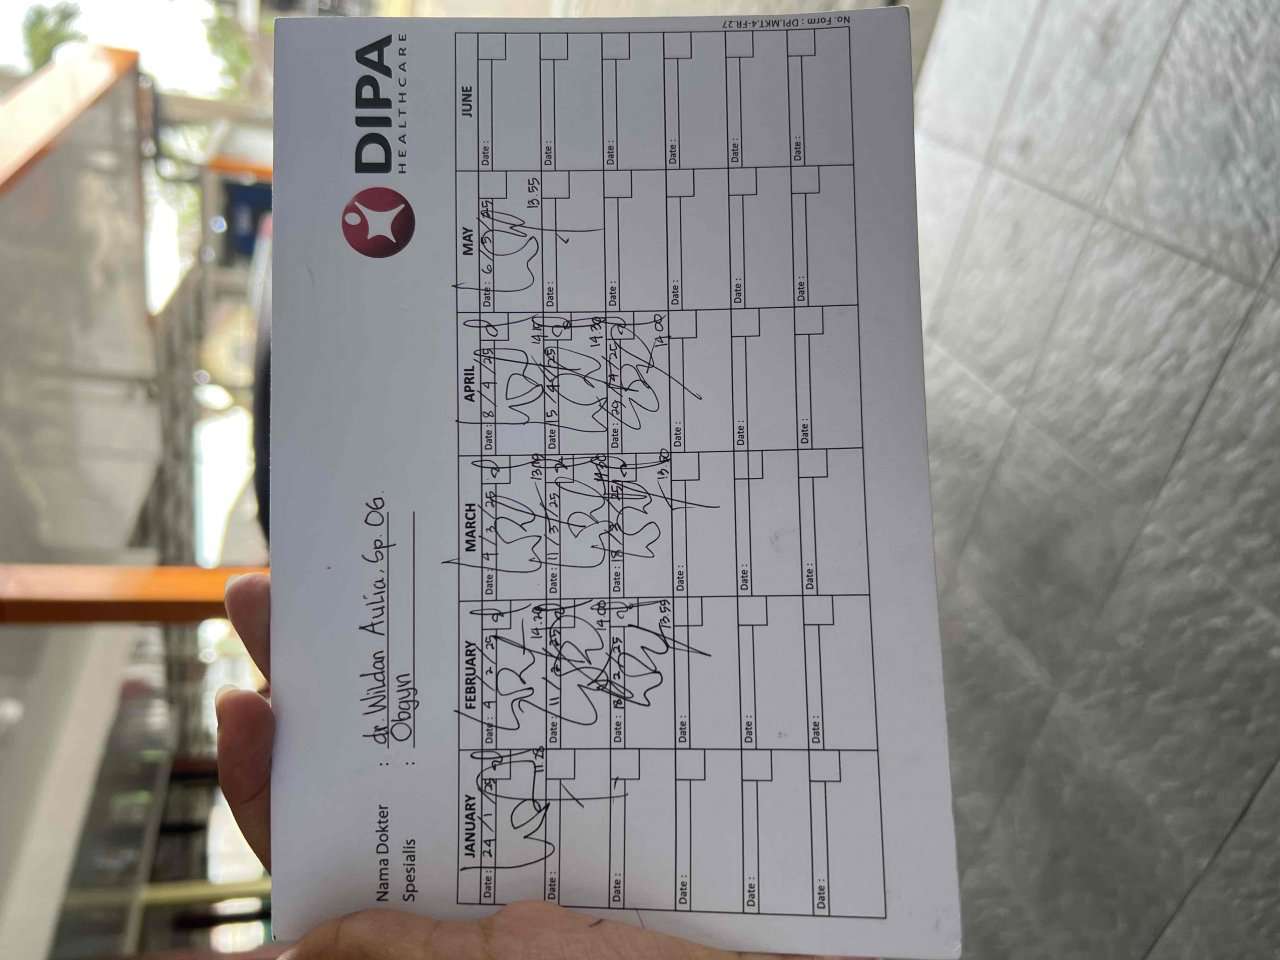 DIPA
HEALTHCARE
Nama Dokter : dr. Wildan Aulia, Sp. OG
Spesialis : Obgyn
JANUARY FEBRUARY MARCH APRIL MAY JUNE
Date : 24 / 1 / 25 Date : 4 / 2 / 25 Date : 4 / 3 / 25 Date : 8 / 4 / 25 Date : 6 / 5 / 25 Date :
11.28 14.20 13.09 14.10 13.55
Date : Date : 11 / 2 / 25 Date : 11 / 3 / 25 Date : 15 / 4 / 25 Date : Date :
14.00 14.30
Date : Date : 18 / 2 / 25 Date : 18 / 3 / 25 Date : 29 / 4 / 25 Date : Date :
13.55 14.00
Date : Date : Date : Date : Date : Date :
Date : Date : Date : Date : Date : Date :
Date : Date : Date : Date : Date : Date :
No. Form : DPI.MKT.4-FR.27